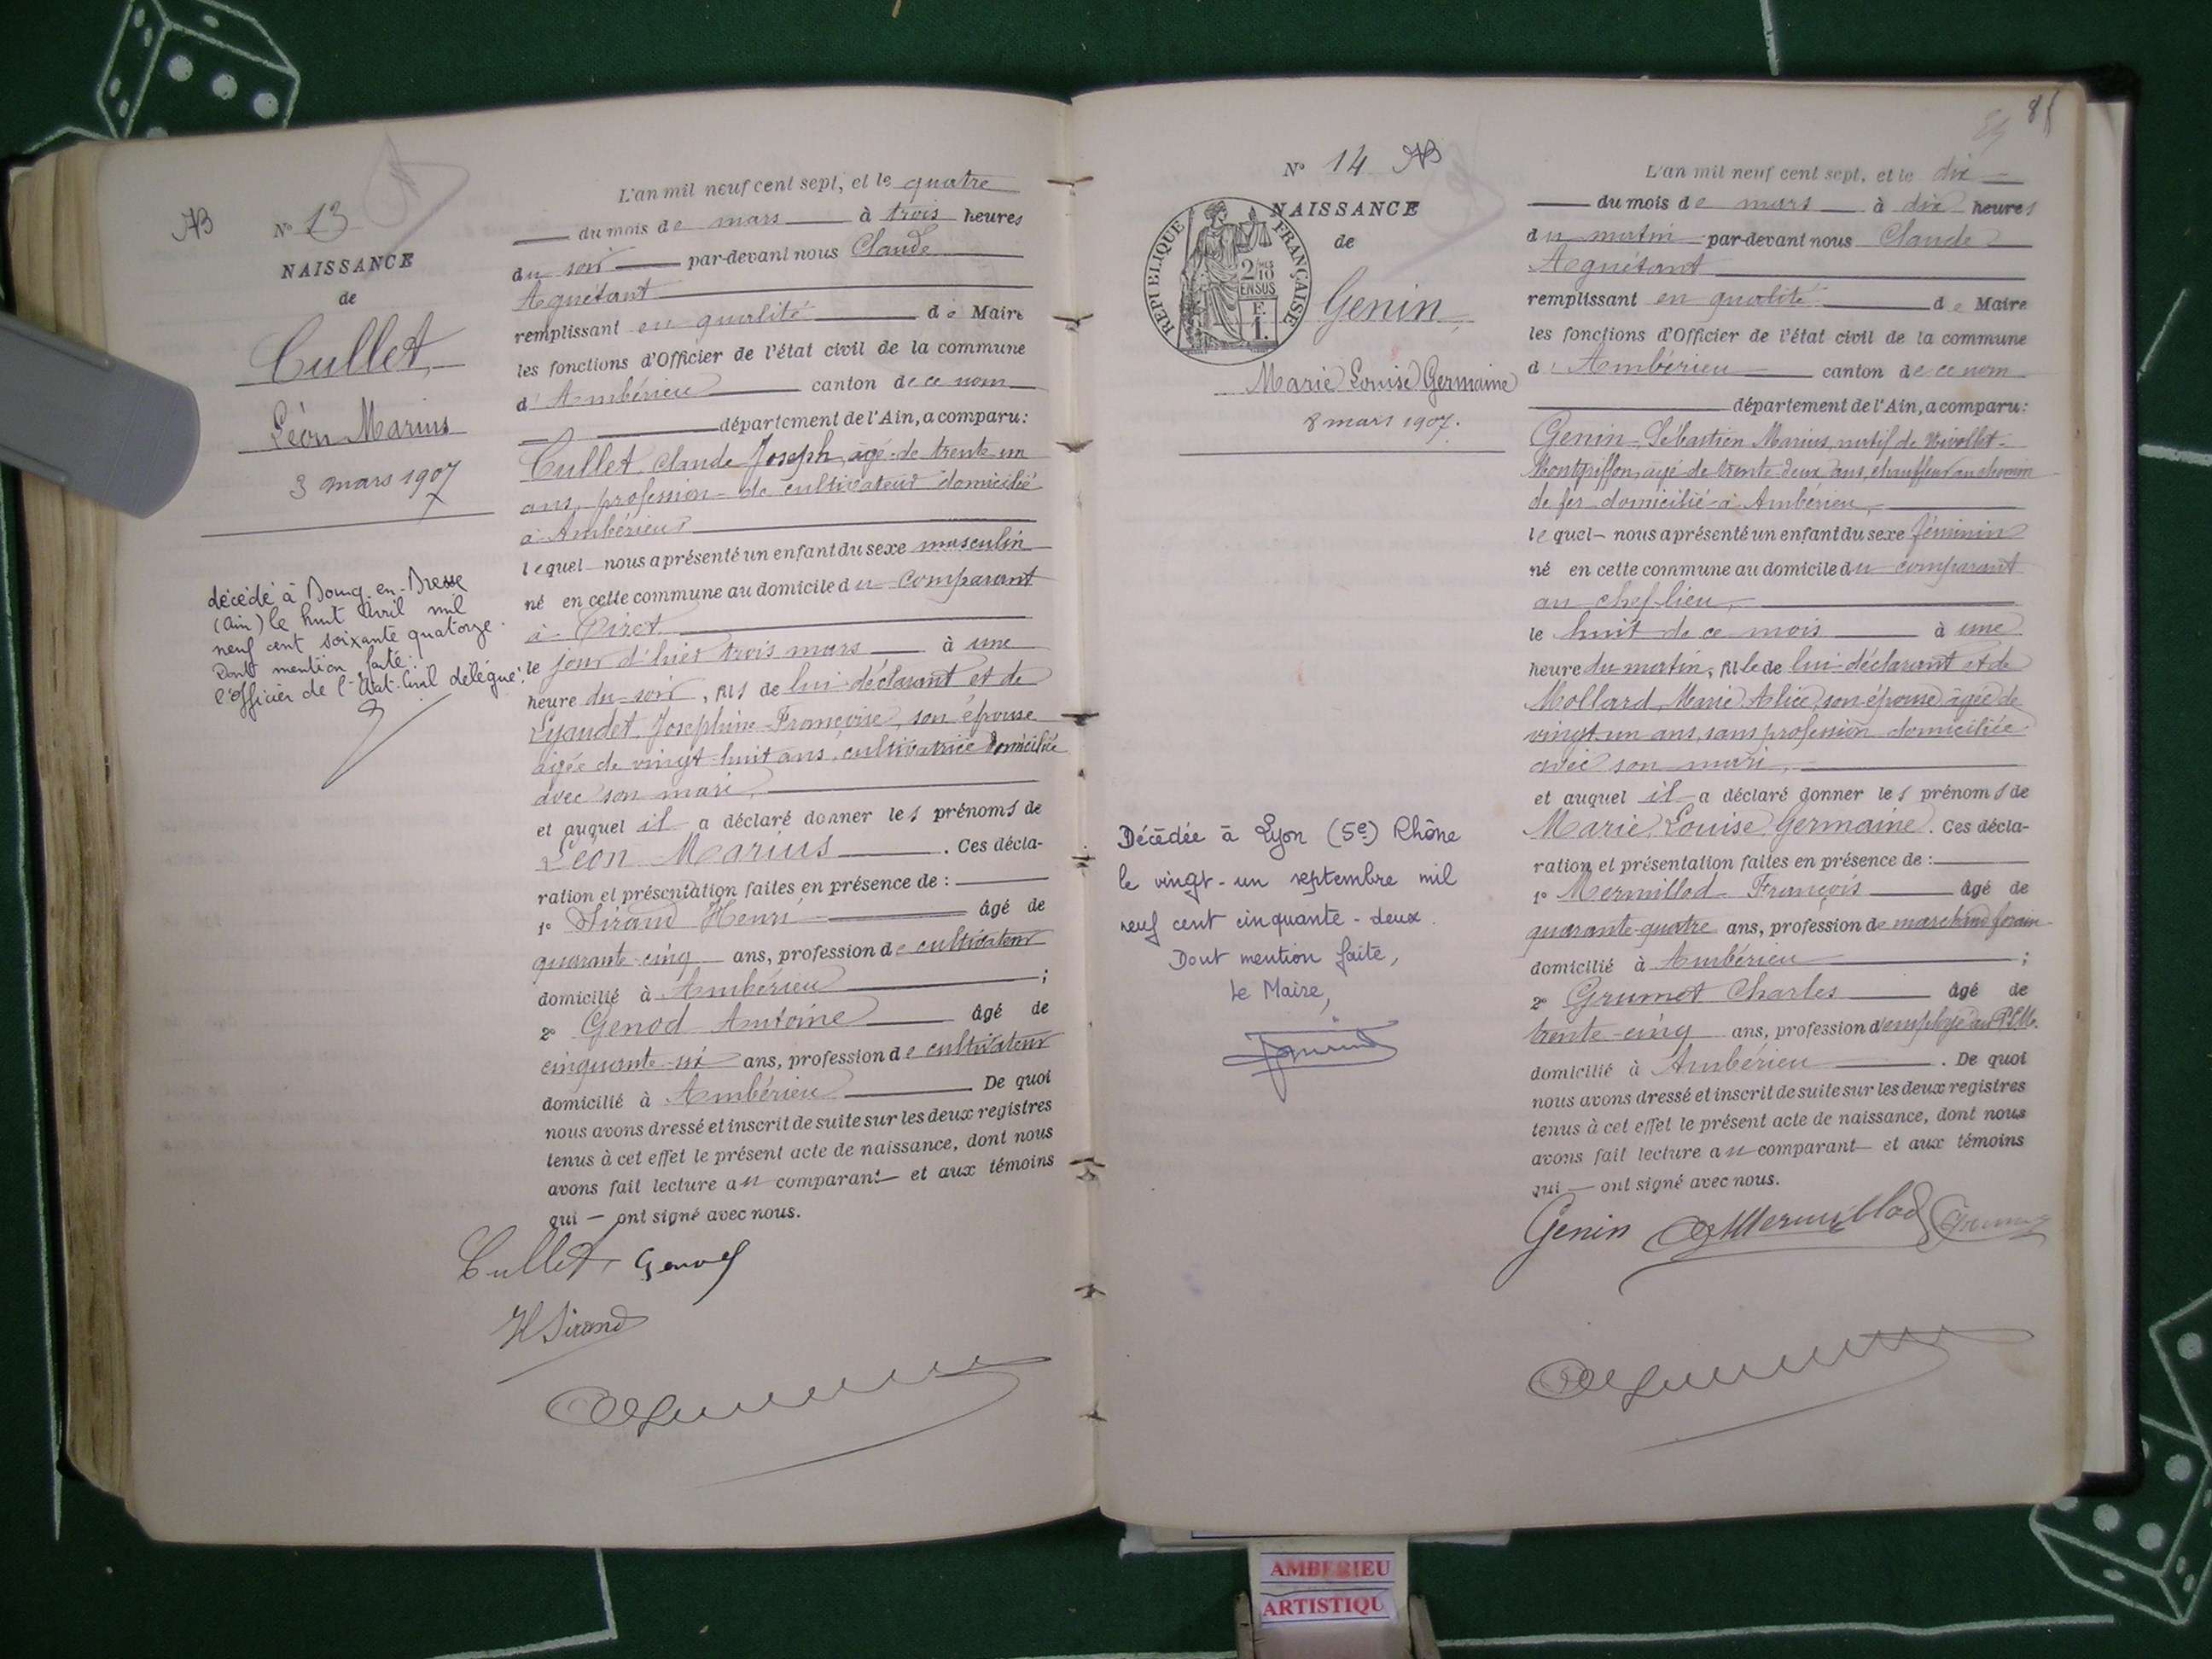 AB
N° 13
NAISSANCE
de
Cullet,
Léon Marius
3 mars 1907
décédé à Bourg-en-Bresse
(Ain) le huit Avril mil
neuf cent soixante quatorze.
Dont mention faite:
l'officier de l'Etat-Civil délégué:
L'an mil neuf cent sept, et le quatre
du mois de mars à trois heures
du soir par-devant nous Claude
Aguétant
remplissant en qualité de Maire
les fonctions d'Officier de l'état civil de la commune
d'Ambérieu canton de ce nom
département de l'Ain, a comparu:
Cullet Claude Joseph, âgé de trente un
ans, profession de cultivateur domicilié
à Ambérieu
lequel nous a présenté un enfant du sexe masculin
né en cette commune au domicile du comparant
à Tiret
le jour d'hier trois mars à une
heure du soir, fils de lui déclarant et de
Lyaudet Josephine Françoise, son épouse
agée de vingt-huit ans, cultivatrice domiciliée
avec son mari,
et auquel il a déclaré donner les prénoms de
Léon Marius. Ces décla-
ration et présentation faites en présence de :
1° Sirand Henri âgé de
quarante-cinq ans, profession de cultivateur
domicilié à Ambérieu ;
2° Genod Antoine âgé de
cinquante-six ans, profession de cultivateur
domicilié à Ambérieu De quoi
nous avons dressé et inscrit de suite sur les deux registres
tenus à cet effet le présent acte de naissance, dont nous
avons fait lecture au comparant et aux témoins
qui ont signé avec nous.
Cullet Genod
H Sirand
85
N° 14 AB
NAISSANCE
de
RÉPUBLIQUE FRANÇAISE
2/10
EN SUS
F.
1.
Genin,
Marie Louise Germaine
8 mars 1907.
Décédée à Lyon (5e) Rhône
le vingt-un septembre mil
neuf cent cinquante-deux.
Dont mention faite,
Le Maire,
L'an mil neuf cent sept, et le dix
du mois de mars à dix heures
du matin par-devant nous Claude
Aguétant
remplissant en qualité de Maire
les fonctions d'Officier de l'état civil de la commune
d'Ambérieu canton de ce nom
département de l'Ain, a comparu:
Genin Sébastien Marius, natif de Nivollet-
Montgriffon, âgé de trente-deux ans, chauffeur au chemin
de fer domicilié à Ambérieu,
lequel nous a présenté un enfant du sexe féminin
né en cette commune au domicile du comparant
au chef-lieu,
le huit de ce mois à une
heure du matin, fille de lui déclarant et de
Mollard, Marie Alice, son épouse, âgée de
vingt un ans, sans profession domiciliée
avec son mari,
et auquel il a déclaré donner les prénoms de
Marie Louise Germaine. Ces décla-
ration et présentation faites en présence de :
1° Mermillod François âgé de
quarante-quatre ans, profession de marchand forain
domicilié à Ambérieu ;
2° Grumet Charles âgé de
trente-cinq ans, profession d'employé au PLM.
domicilié à Ambérieu. De quoi
nous avons dressé et inscrit de suite sur les deux registres
tenus à cet effet le présent acte de naissance, dont nous
avons fait lecture au comparant et aux témoins
qui ont signé avec nous.
Genin Mermillod Grumet
AMBERIEU
ARTISTIQU